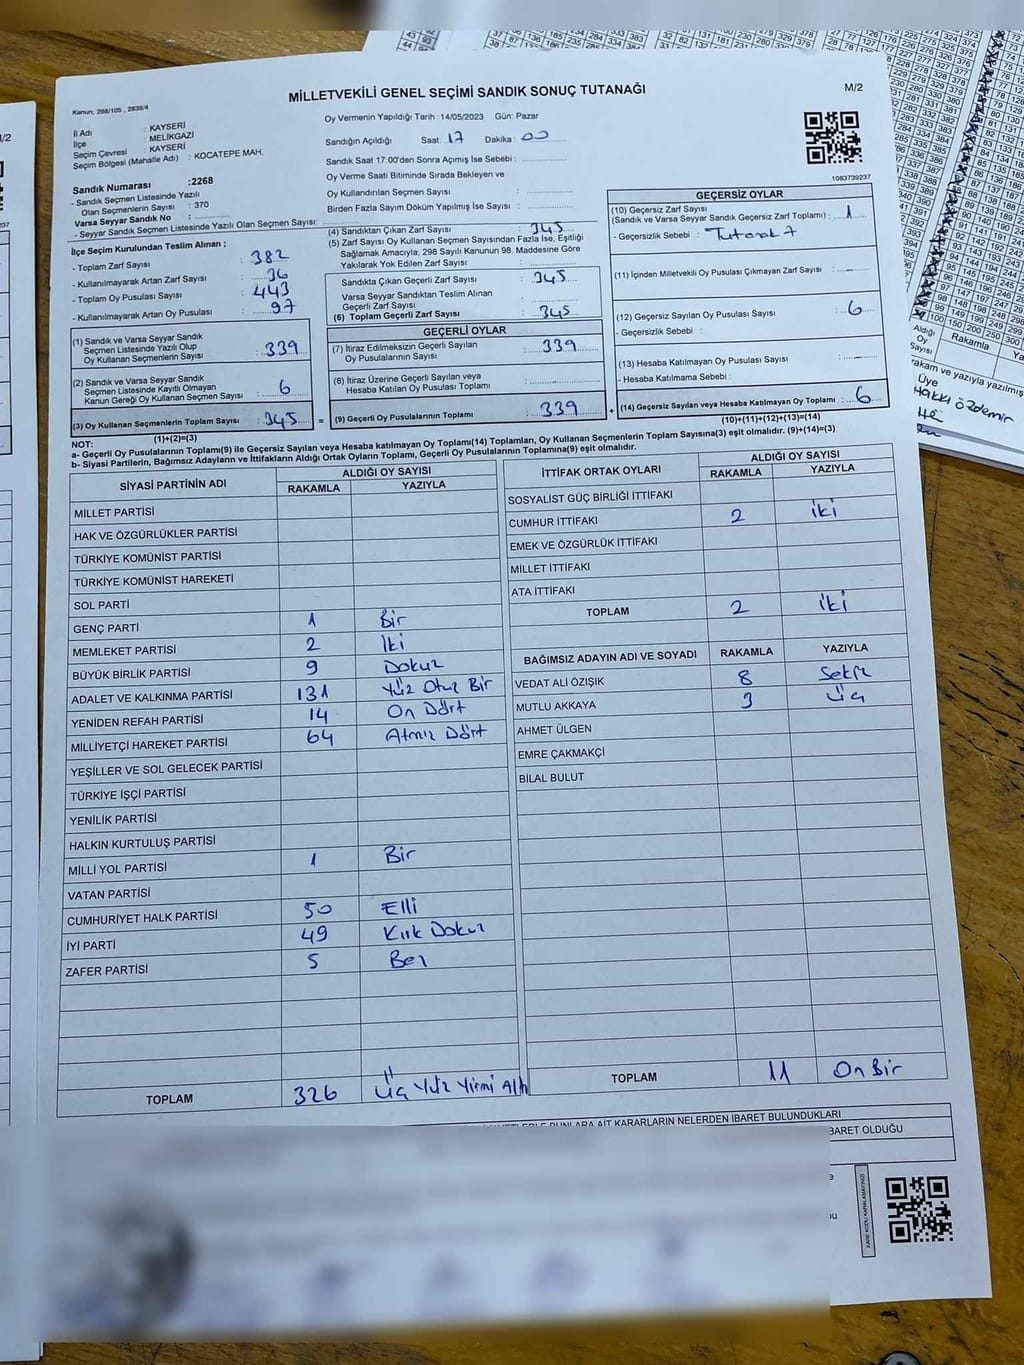 MİLLETVEKİLİ GENEL SEÇİMİ SANDIK SONUÇ TUTANAĞI
M/2
Kanun; 298/105 , 2839/4
İl Adı : KAYSERİ
İlçe : MELİKGAZİ
Seçim Çevresi : KAYSERİ
Seçim Bölgesi (Mahalle Adı) : KOCATEPE MAH.
Sandık Numarası :2268
- Sandık Seçmen Listesinde Yazılı
Olan Seçmenlerin Sayısı : 370
Varsa Seyyar Sandık No :
- Seyyar Sandık Seçmen Listesinde Yazılı Olan Seçmen Sayısı:
Oy Vermenin Yapıldığı Tarih : 14/05/2023 Gün: Pazar
Sandığın Açıldığı Saat: 17 Dakika : 00
Sandık Saat 17:00'den Sonra Açımış İse Sebebi :
Oy Verme Saati Bitiminde Sırada Bekleyen ve
Oy Kullandırılan Seçmen Sayısı :
Birden Fazla Sayım Döküm Yapılmış İse Sayısı :
1083739237
İlçe Seçim Kurulundan Teslim Alınan ;
- Toplam Zarf Sayısı : 382
- Kullanılmayarak Artan Zarf Sayısı : 36
- Toplam Oy Pusulası Sayısı : 443
- Kullanılmayarak Artan Oy Pusulası : 97
(1) Sandık ve Varsa Seyyar Sandık
Seçmen Listesinde Yazılı Olup
Oy Kullanan Seçmenlerin Sayısı : 339
(2) Sandık ve Varsa Seyyar Sandık
Seçmen Listesinde Kayıtlı Olmayan
Kanun Gereği Oy Kullanan Seçmen Sayısı : 6
(3) Oy Kullanan Seçmenlerin Toplam Sayısı : 345 =
(1)+(2)=(3)
(4) Sandıktan Çıkan Zarf Sayısı : 345
(5) Zarf Sayısı Oy Kullanan Seçmen Sayısından Fazla İse, Eşitliği
Sağlamak Amacıyla; 298 Sayılı Kanunun 98. Maddesine Göre
Yakılarak Yok Edilen Zarf Sayısı :
Sandıkta Çıkan Geçerli Zarf Sayısı : 345
Varsa Seyyar Sandıktan Teslim Alınan
Geçerli Zarf Sayısı :
(6) Toplam Geçerli Zarf Sayısı : 345
GEÇERLİ OYLAR
(7) İtiraz Edilmeksizin Geçerli Sayılan
Oy Pusulalarının Sayısı : 339
(8) İtiraz Üzerine Geçerli Sayılan veya
Hesaba Katılan Oy Pusulası Toplamı :
(9) Geçerli Oy Pusulalarının Toplamı : 339 +
GEÇERSİZ OYLAR
(10) Geçersiz Zarf Sayısı
(Sandık ve Varsa Seyyar Sandık Geçersiz Zarf Toplamı) : 1
- Geçersizlik Sebebi : Tutanak 7
(11) İçinden Milletvekili Oy Pusulası Çıkmayan Zarf Sayısı : -
(12) Geçersiz Sayılan Oy Pusulası Sayısı : 6
- Geçersizlik Sebebi :
(13) Hesaba Katılmayan Oy Pusulası Sayısı : -
- Hesaba Katılmama Sebebi :
(14) Geçersiz Sayılan veya Hesaba Katılmayan Oy Toplamı : 6
(10)+(11)+(12)+(13)=(14)
NOT:
a- Geçerli Oy Pusulalarının Toplamı(9) ile Geçersiz Sayılan veya Hesaba katılmayan Oy Toplamı(14) Toplamları, Oy Kullanan Seçmenlerin Toplam Sayısına(3) eşit olmalıdır. (9)+(14)=(3)
b- Siyasi Partilerin, Bağımsız Adayların ve İttifakların Aldığı Ortak Oyların Toplamı, Geçerli Oy Pusulalarının Toplamına(9) eşit olmalıdır.
SİYASİ PARTİNİN ADI ALDIĞI OY SAYISI
RAKAMLA YAZIYLA
MİLLET PARTİSİ
HAK VE ÖZGÜRLÜKLER PARTİSİ
TÜRKİYE KOMÜNİST PARTİSİ
TÜRKİYE KOMÜNİST HAREKETİ
SOL PARTİ
GENÇ PARTİ 1 Bir
MEMLEKET PARTİSİ 2 İki
BÜYÜK BİRLİK PARTİSİ 9 Dokuz
ADALET VE KALKINMA PARTİSİ 131 Yüz Otuz Bir
YENİDEN REFAH PARTİSİ 14 On Dört
MİLLİYETÇİ HAREKET PARTİSİ 64 Atmış Dört
YEŞİLLER VE SOL GELECEK PARTİSİ
TÜRKİYE İŞÇİ PARTİSİ
YENİLİK PARTİSİ
HALKIN KURTULUŞ PARTİSİ
MİLLİ YOL PARTİSİ 1 Bir
VATAN PARTİSİ
CUMHURİYET HALK PARTİSİ 50 Elli
İYİ PARTİ 49 Kırk Dokuz
ZAFER PARTİSİ 5 Beş
TOPLAM 326 Üç Yüz Yirmi Altı
İTTİFAK ORTAK OYLARI ALDIĞI OY SAYISI
RAKAMLA YAZIYLA
SOSYALİST GÜÇ BİRLİĞİ İTTİFAKI
CUMHUR İTTİFAKI 2 İki
EMEK VE ÖZGÜRLÜK İTTİFAKI
MİLLET İTTİFAKI
ATA İTTİFAKI
TOPLAM 2 İki
BAĞIMSIZ ADAYIN ADI VE SOYADI RAKAMLA YAZIYLA
VEDAT ALİ ÖZIŞIK 8 Sekiz
MUTLU AKKAYA 3 Üç
AHMET ÜLGEN
EMRE ÇAKMAKÇİ
BİLAL BULUT
TOPLAM 11 On Bir
BUNLARA AİT KARARLARIN NELERDEN İBARET BULUNDUKLARI
BARET OLDUĞU
KARE KODU KARALAMAYINIZ
Aldığı
Oy
Sayısı
Rakamla
rakam ve yazıyla yazılmış
Üye
Hakkı Özdemir